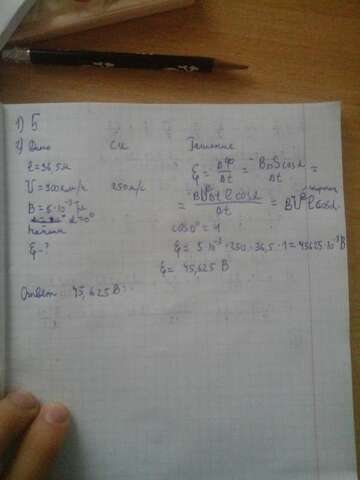 1) 5
2) Дано СИ Решение
ℓ = 36,5 м
V = 900 км/ч 250 м/с
B = 5·10⁻³ Тл
α = 0°
Найти
ξ - ?
ξ = ΔΦ/Δt = BΔS cosα/Δt =
= BVΔt ℓ cosα/Δt = BVℓ cosα
cos 0° = 1
ξ = 5·10⁻³·250·36,5·1 = 45625·10⁻³ В
ξ = 45,625 В
Ответ: 45,625 В